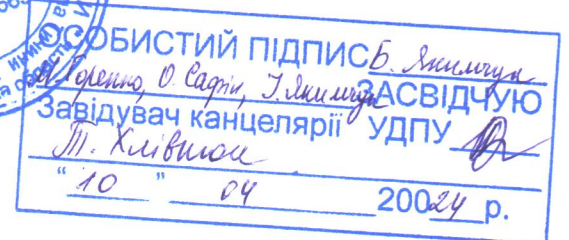 ОСОБИСТИЙ ПІДПИС Б. Якимчук
М. Торенно, О. Сафін, І. Якимчук ЗАСВІДЧУЮ
Завідувач канцелярії УДПУ
Т.
"10" 04 20024 р.